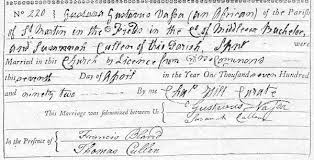 No 220 } Gustavus Vassa (an African) of the Parish
of St Martin in the Fields in the Co of Middlesex Bachelor
and Susannah Cullen of this Parish, Spinr
Married in this Church by Licence from
this Day of April in the Year One Thousand seven Hundred
and ninety two By me Chas Hill Curate
This Marriage was solemnized between Us { Gustavus Vassa
Susannah Cullen
In the Presence of { Francis Bland
Thomas Cullen